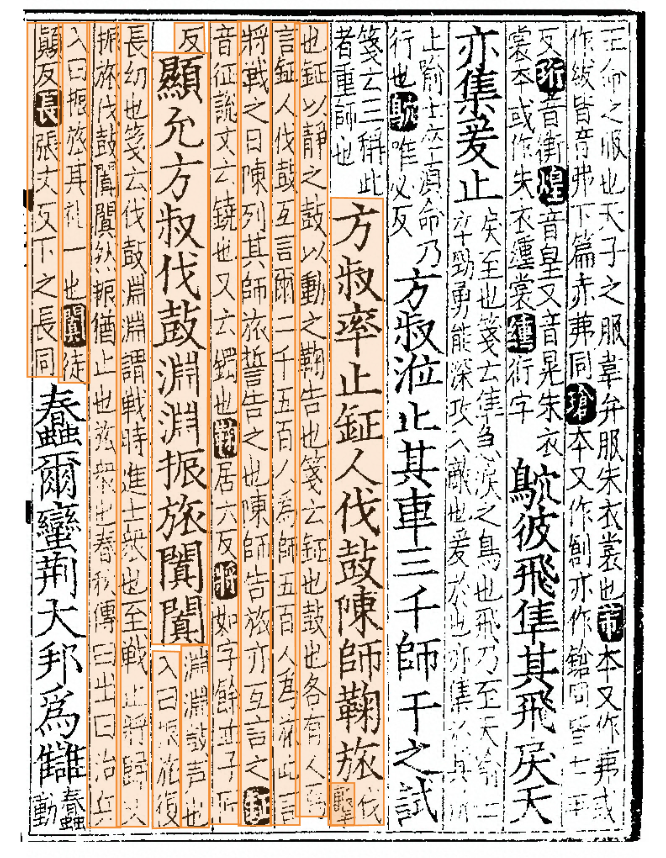 王命之服也天子之服韋弁服朱衣裳也芾本又作茀或
作紱皆音弗下篇赤茀同瑲本又作創亦作鎗同皆七羊
反珩音衡煌音皇又音晃朱衣
裳本或作朱衣纁裳纁衍字
鴥彼飛隼其飛戾天
亦集爰止
戾至也箋云隼急疾之鳥也飛乃至天喻士
卒勁勇能深攻入敵也爰於也亦集於其所
止喻士卒須命乃
行也鴥唯必反
方叔涖止其車三千師干之試
箋云三稱此
者重師也
方叔率止鉦人伐鼓陳師鞠旅
伐
擊
也鉦以靜之鼓以動之鞠告也箋云鉦也鼓也各有人焉
言鉦人伐鼓互言爾二千五百人爲師五百人爲旅此言
將戰之日陳列其師旅誓告之也陳師告旅亦互言之鉦
音征說文云鐃也又云鐲也鞠居六反將如字餘並子匠
反
顯允方叔伐鼓淵淵振旅闐闐
淵淵鼓聲也
入曰振旅復
長幼也箋云伐鼓淵淵謂戰時進士衆也至戰止將歸又
振旅伐鼓闐闐然振猶止也旅衆也春秋傳曰出曰治兵
入曰振旅其礼一也闐徒
顛反長張丈反下之長同
蠢爾蠻荊大邦爲讎
蠢
動